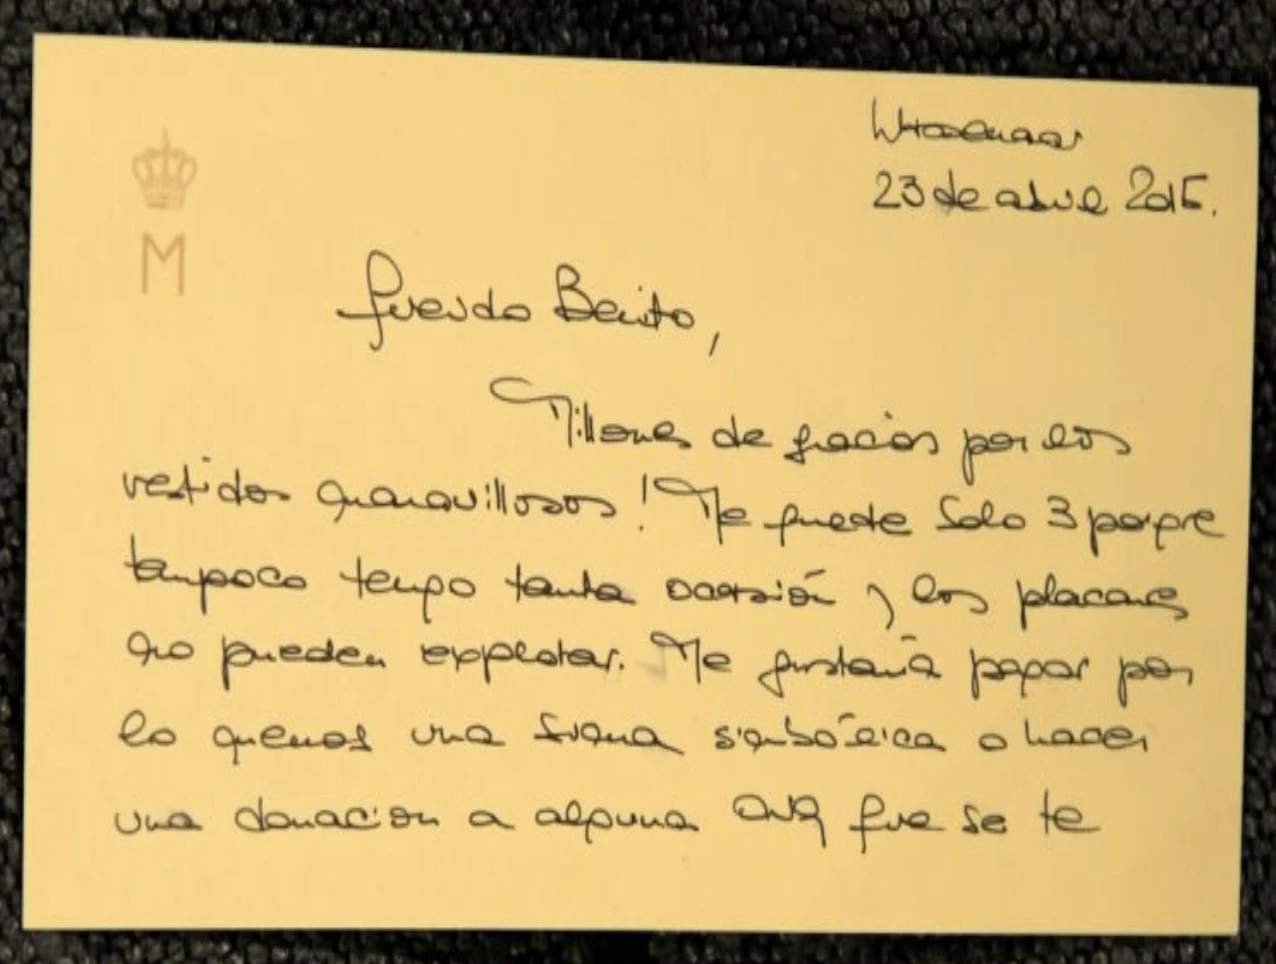 Wassenaar
23 de abril 2015.
M
Querido Benito,
Millones de gracias por los
vestidos maravillosos! Me quede solo 3 porque
tampoco tengo tanta ocasión y los placares
no pueden explotar. Me gustaría pagar por
lo menos una suma simbólica o hacer
una donacion a alguna ONG que se te